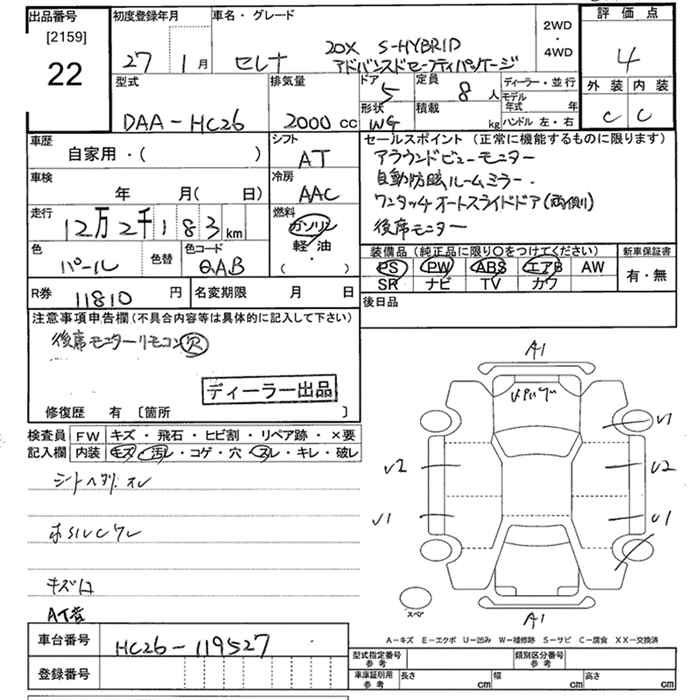 出品番号
[2159]
22
初度登録年月
27 1月
車名・グレード
セレナ
20X S-HYBRID
アドバンスドセーフティパッケージ
2WD
・
4WD
評価点
4
外装 内装
C C
型式
DAA-HC26
排気量
2000 cc
ドア
5
定員
8 人
形状
WG
積載
kg
ディーラー・並行
モデル
年式 年
ハンドル 左・右
車歴
自家用・( )
シフト
AT
車検
年 月( 日)
冷房
AAC
走行
12万2千183km
燃料
ガソリン
軽油
・
( )
色
パール
色替
色コード
QAB
R券
11810 円
名変期限 月 日
セールスポイント (正常に機能するものに限ります)
アラウンドビューモニター
自動防眩ルームミラー.
ワンタッチオートスライドドア(両側)
後席モニター
装備品 (純正品に限り○をつけてください)
PS PW ABS エアB AW
SR ナビ TV カワ
新車保証書
有・無
後日品
注意事項申告欄(不具合内容等は具体的に記入して下さい)
後席モニターリモコン欠
ディーラー出品
修復歴 有 [箇所 ]
検査員
記入欄
FW キズ・飛石・ヒビ割・リペア跡・×要
内装 キズ・汚レ・コゲ・穴・スレ・キレ・破レ
シートヘタリ.スレ
キズ口
車台番号
HC26-119527
登録番号
A1
V1
V2
U2
V1
U1
スペア
A1
A-キズ E-エクボ U-凹み W-補修跡 S-サビ C-腐食 XX-交換済
型式指定番号
参考
類別区分番号
参考
車庫証明用
参考
長さ cm
幅 cm
高さ cm